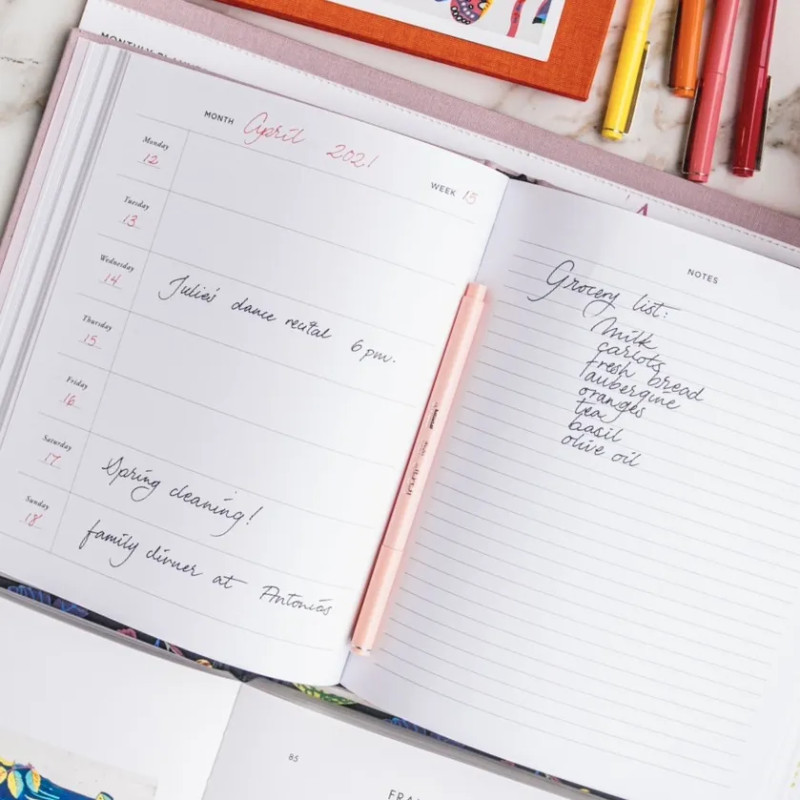 MONTHLY
MONTH April 2021
WEEK 15
Monday
12
Tuesday
13
Wednesday
14
Julie's dance recital 6 pm.
Thursday
15
Friday
16
Saturday
17
Spring cleaning!
Sunday
18
family dinner at Antonio's
NOTES
Grocery list:
Milk
carrots
fresh bread
aubergine
oranges
tea
basil
olive oil
85